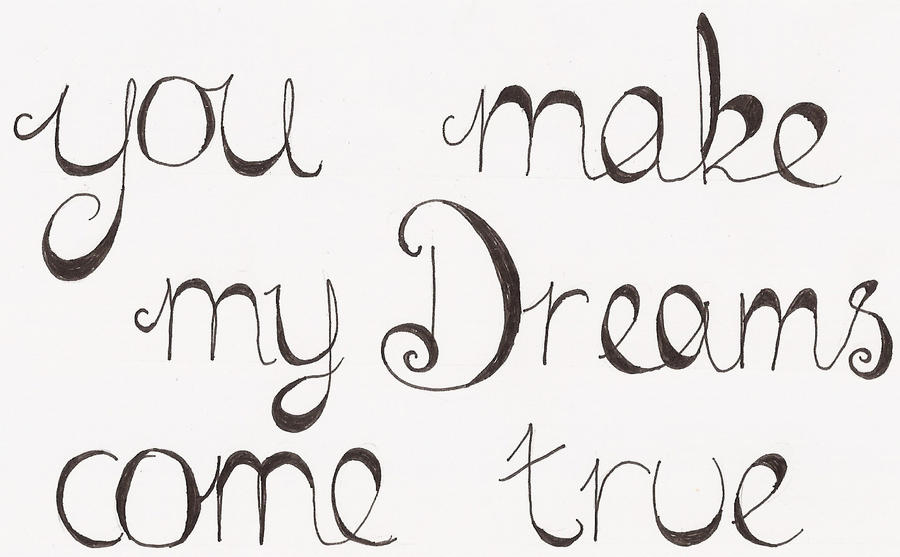 you make
my Dreams
come true